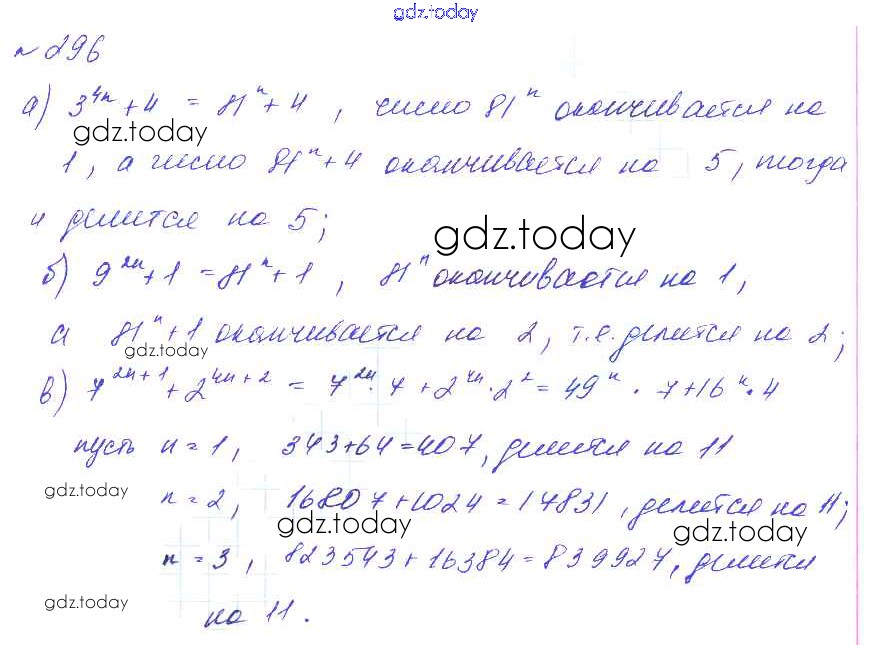 gdz.today
№ 296
а) 3^{4n} + 4 = 81^n + 4, число 81^n оканчивается на
gdz.today
1, а число 81^n + 4 оканчивается на 5, тогда
и делится на 5;
gdz.today
б) 9^{2n} + 1 = 81^n + 1, 81^n оканчивается на 1,
а 81^n + 1 оканчивается на 2, т.е. делится на 2;
gdz.today
в) 7^{2n+1} + 2^{4n+2} = 7^{2n} · 7 + 2^{4n} · 2^2 = 49^n · 7 + 16^n · 4
пусть n = 1, 343 + 64 = 407, делится на 11
gdz.today
n = 2, 16807 + 1024 = 17831, делится на 11;
gdz.today
gdz.today
n = 3, 823543 + 16384 = 839927, делится
gdz.today
на 11.